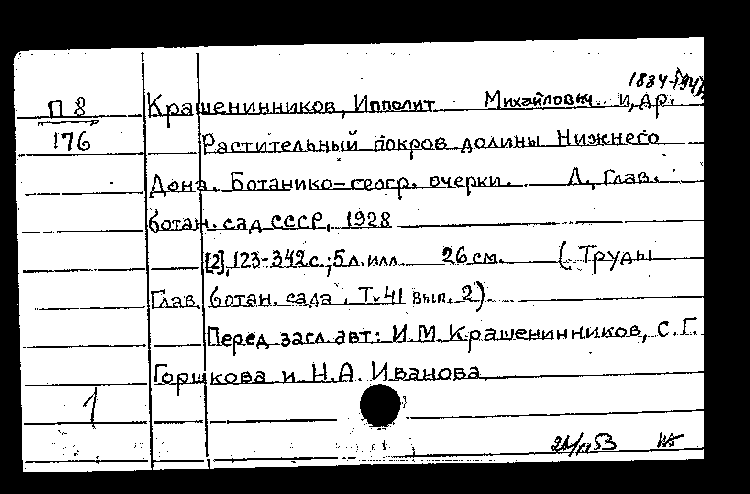 1884-1947
П 8 Крашенинников, Ипполит Михайлович и др.
176 Растительный покров долины Нижнего
Дона. Ботанико-геогр. очерки. Л., Глав.
ботан. сад СССР, 1928
[2], 123-342 с.; 5 л. илл. 26 см. (Труды
Глав. ботан. сада. Т. 41 вып. 2).
Перед загл. авт: И.М. Крашенинников, С.Г.
Горшкова и Н.А. Иванова
1